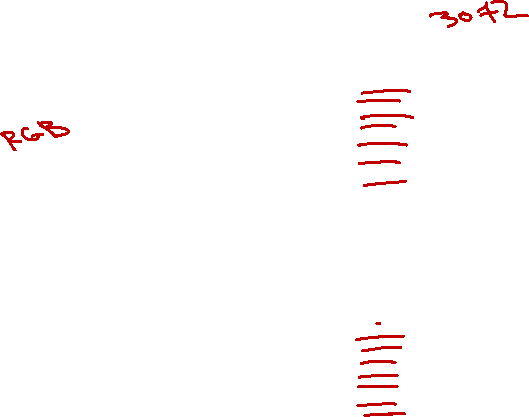 3072
RGB